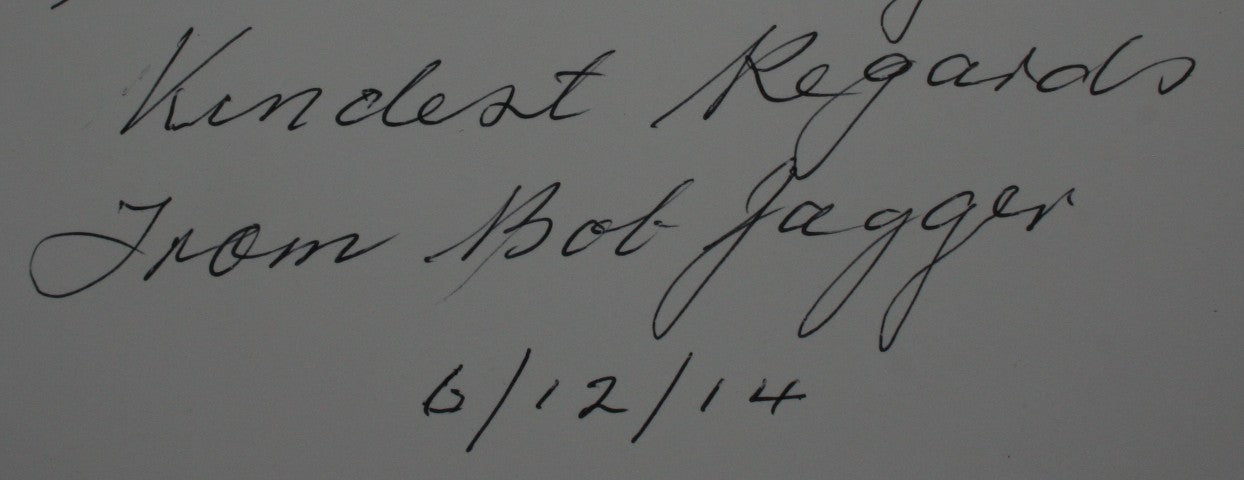 Kindest Regards
From Bob Jagger
6/12/14